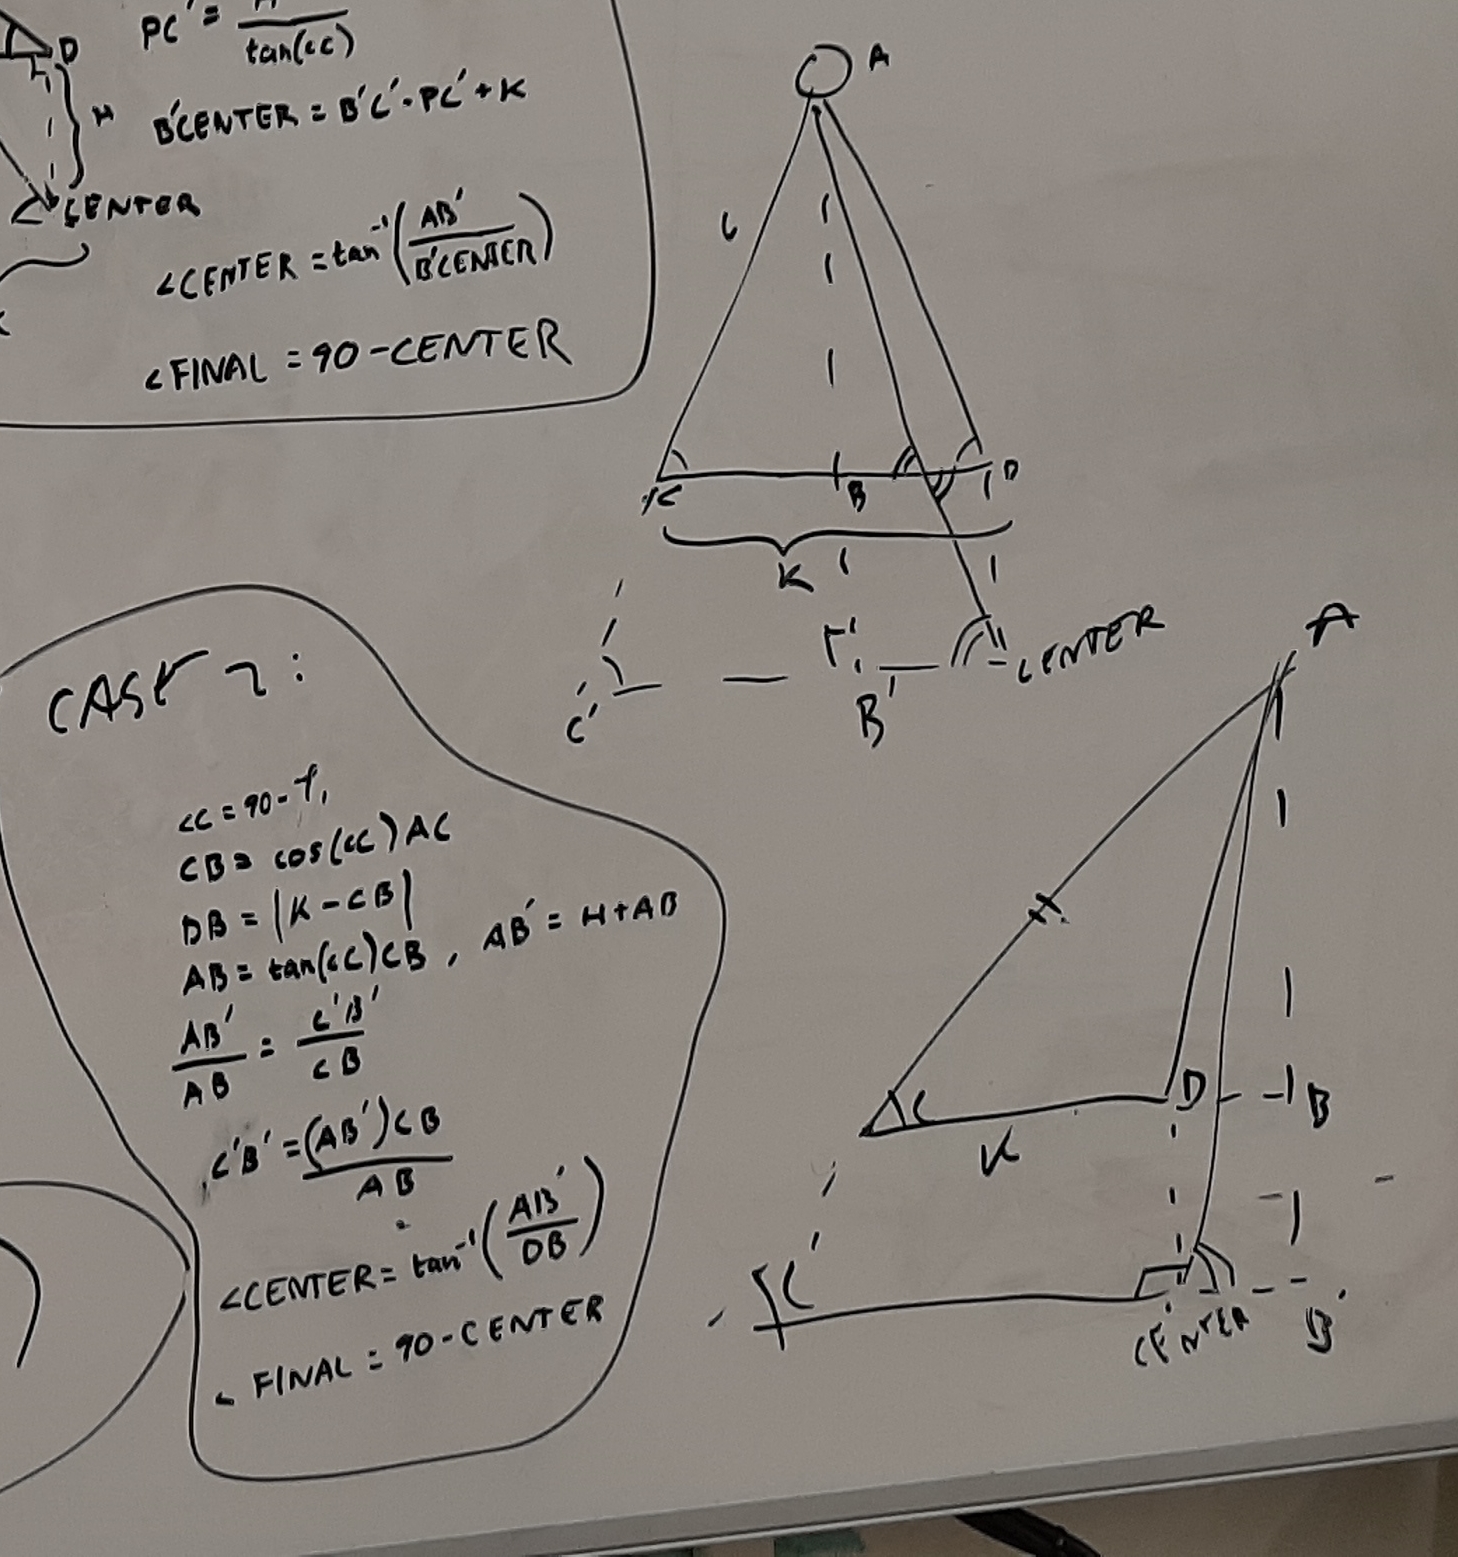 D
PC' = H / tan(∠C)
H
B'CENTER = B'C' - PC' + K
CENTER
∠CENTER = tan⁻¹(AB' / B'CENTER)
∠FINAL = 90 - CENTER
A
C
B
D
K
CENTER
C'
B'
CASE 2:
∠C = 90 - T,
CB = cos(∠C) AC
DB = |K - CB|
AB = tan(∠C) CB, AB' = H + AB
AB' / AB = C'B' / CB
C'B' = (AB') CB / AB
∠CENTER = tan⁻¹(AB' / DB)
∠ FINAL = 90 - CENTER
A
C
D
B
K
C'
CENTER
B'